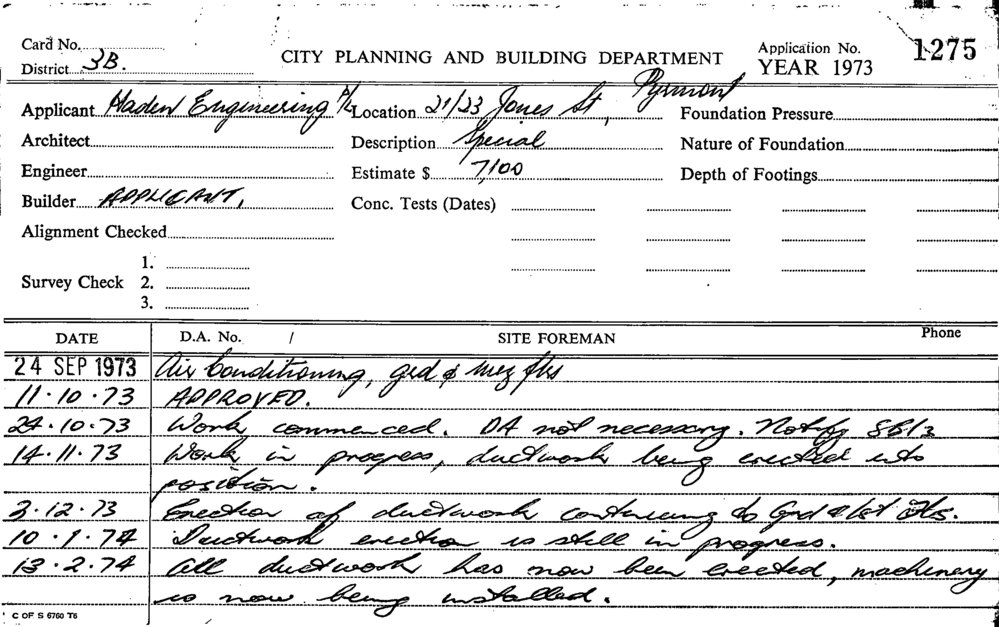 Card No.
District 3B.
CITY PLANNING AND BUILDING DEPARTMENT
Application No. 1275
YEAR 1973
Applicant Haden Engineering P/L Location 21/23 Jones St, Pyrmont Foundation Pressure
Architect Description Special Nature of Foundation
Engineer Estimate $ 7,100 Depth of Footings
Builder APPLICANT, Conc. Tests (Dates)
Alignment Checked
1.
Survey Check 2.
3.
DATE D.A. No. / SITE FOREMAN Phone
24 SEP 1973 Air Conditioning, grd & mez flrs
11.10.73 APPROVED.
24.10.73 Work commenced. DA not necessary. Notify
14.11.73 Work in progress, ductwork being erected into
position.
3.12.73 Erection of ductwork continuing to Grd & 1st Flrs.
10.1.74 Ductwork erection is still in progress.
13.2.74 All ductwork has now been erected, machinery
is now being installed.
C OF S 6760 T6